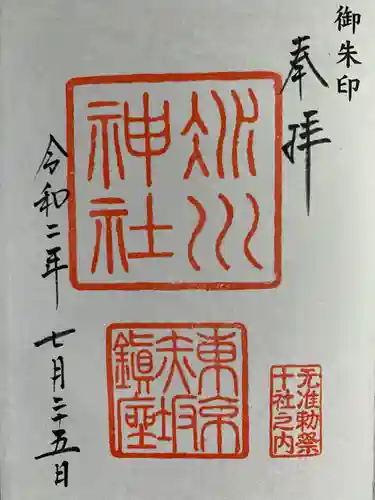 御朱印
奉拝
氷川
神社
東京
赤坂
鎭座
元准勅祭
十社之内
令和二年
七月二十五日